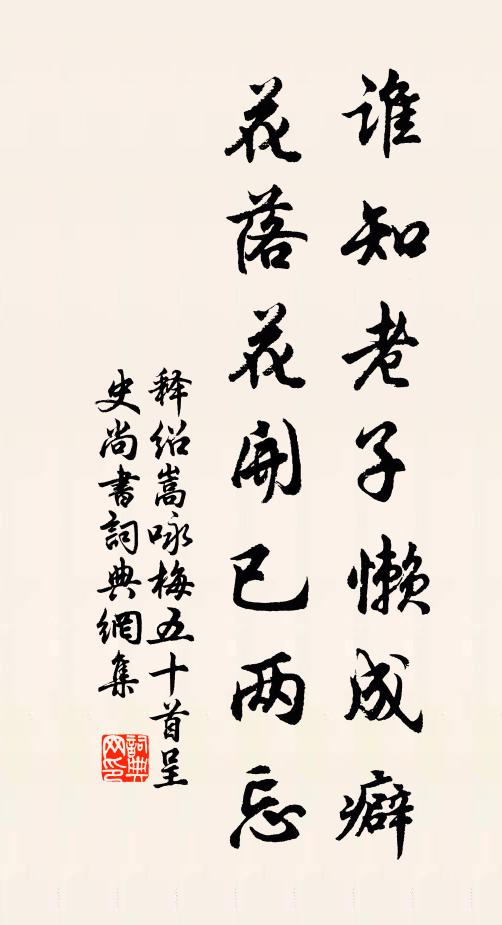 谁知老子懒成癖
花落花开已两忘
释绍嵩咏梅五十首呈
史尚书詞典網集
詞典网印